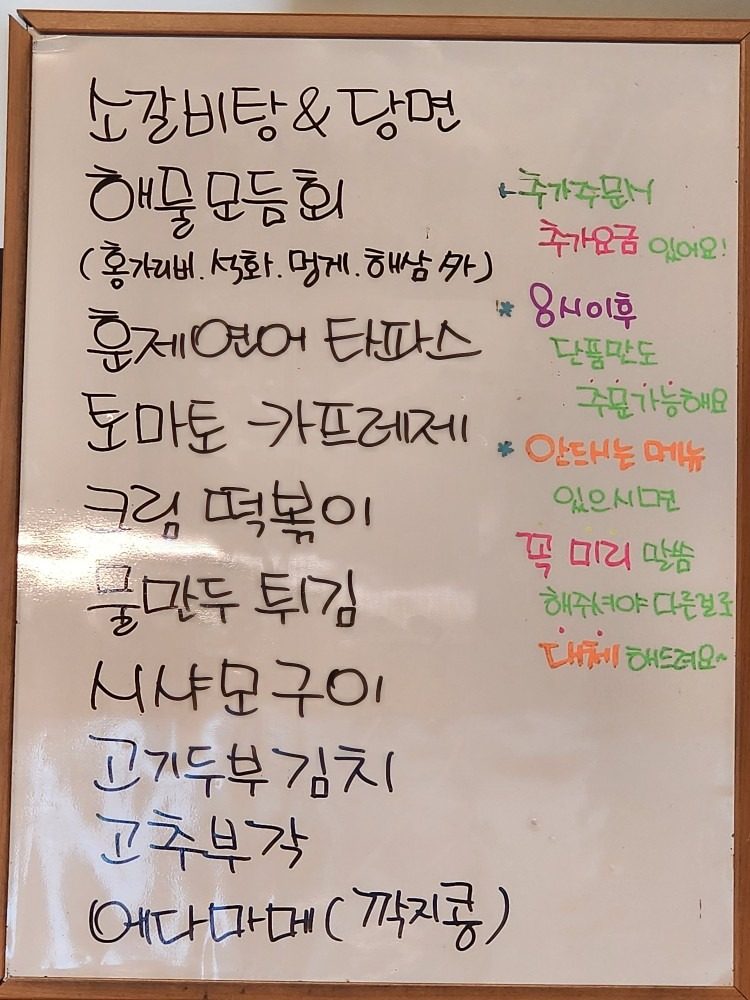 소갈비탕 & 당면
해물모듬회
(홍가리비. 석화. 멍게. 해삼 外)
훈제연어 타파스
토마토 카프레제
크림 떡볶이
물만두 튀김
시샤모구이
고기두부김치
고추부각
에다마메 (깍지콩)
← 추가주문시
추가요금 있어요!
* 8시이후
단품만도
주문가능해요
* 안드시는 메뉴
있으시면
꼭 미리 말씀
해주셔야 다른걸로
대체 해드려요~